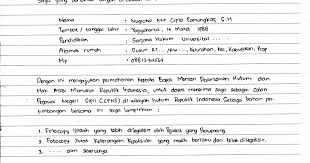 Nama : Nugroho Nur Cipto Pamungkas, S.H
Tempat / tanggal lahir : Yogyakarta, 14 Maret 1988
Pendidikan : Sarjana Hukum Universitas .....
Alamat rumah : Dusun RT.../RW..., Kelurahan, Kec, Kabupaten, Prop
Hp : 
Dengan ini mengajukan permohonan kepada Bapak Menteri Departemen Hukum dan
Hak Asasi Manusia Republik Indonesia, untuk dapat menerima saya sebagai Calon
Pegawai Negeri Sipil (CPNS) di wilayah hukum Republik Indonesia. Sebagai bahan per-
timbangan bersama ini saya lampirkan :
1. Fotocopy Ijazah yang telah dilegalisir oleh Pejabat yang Berwenang.
2. Fotocopy Surat Keterangan Kepolisian yang masih berlaku dan telah dilegalisir.
3. ..... dan seterusnya.